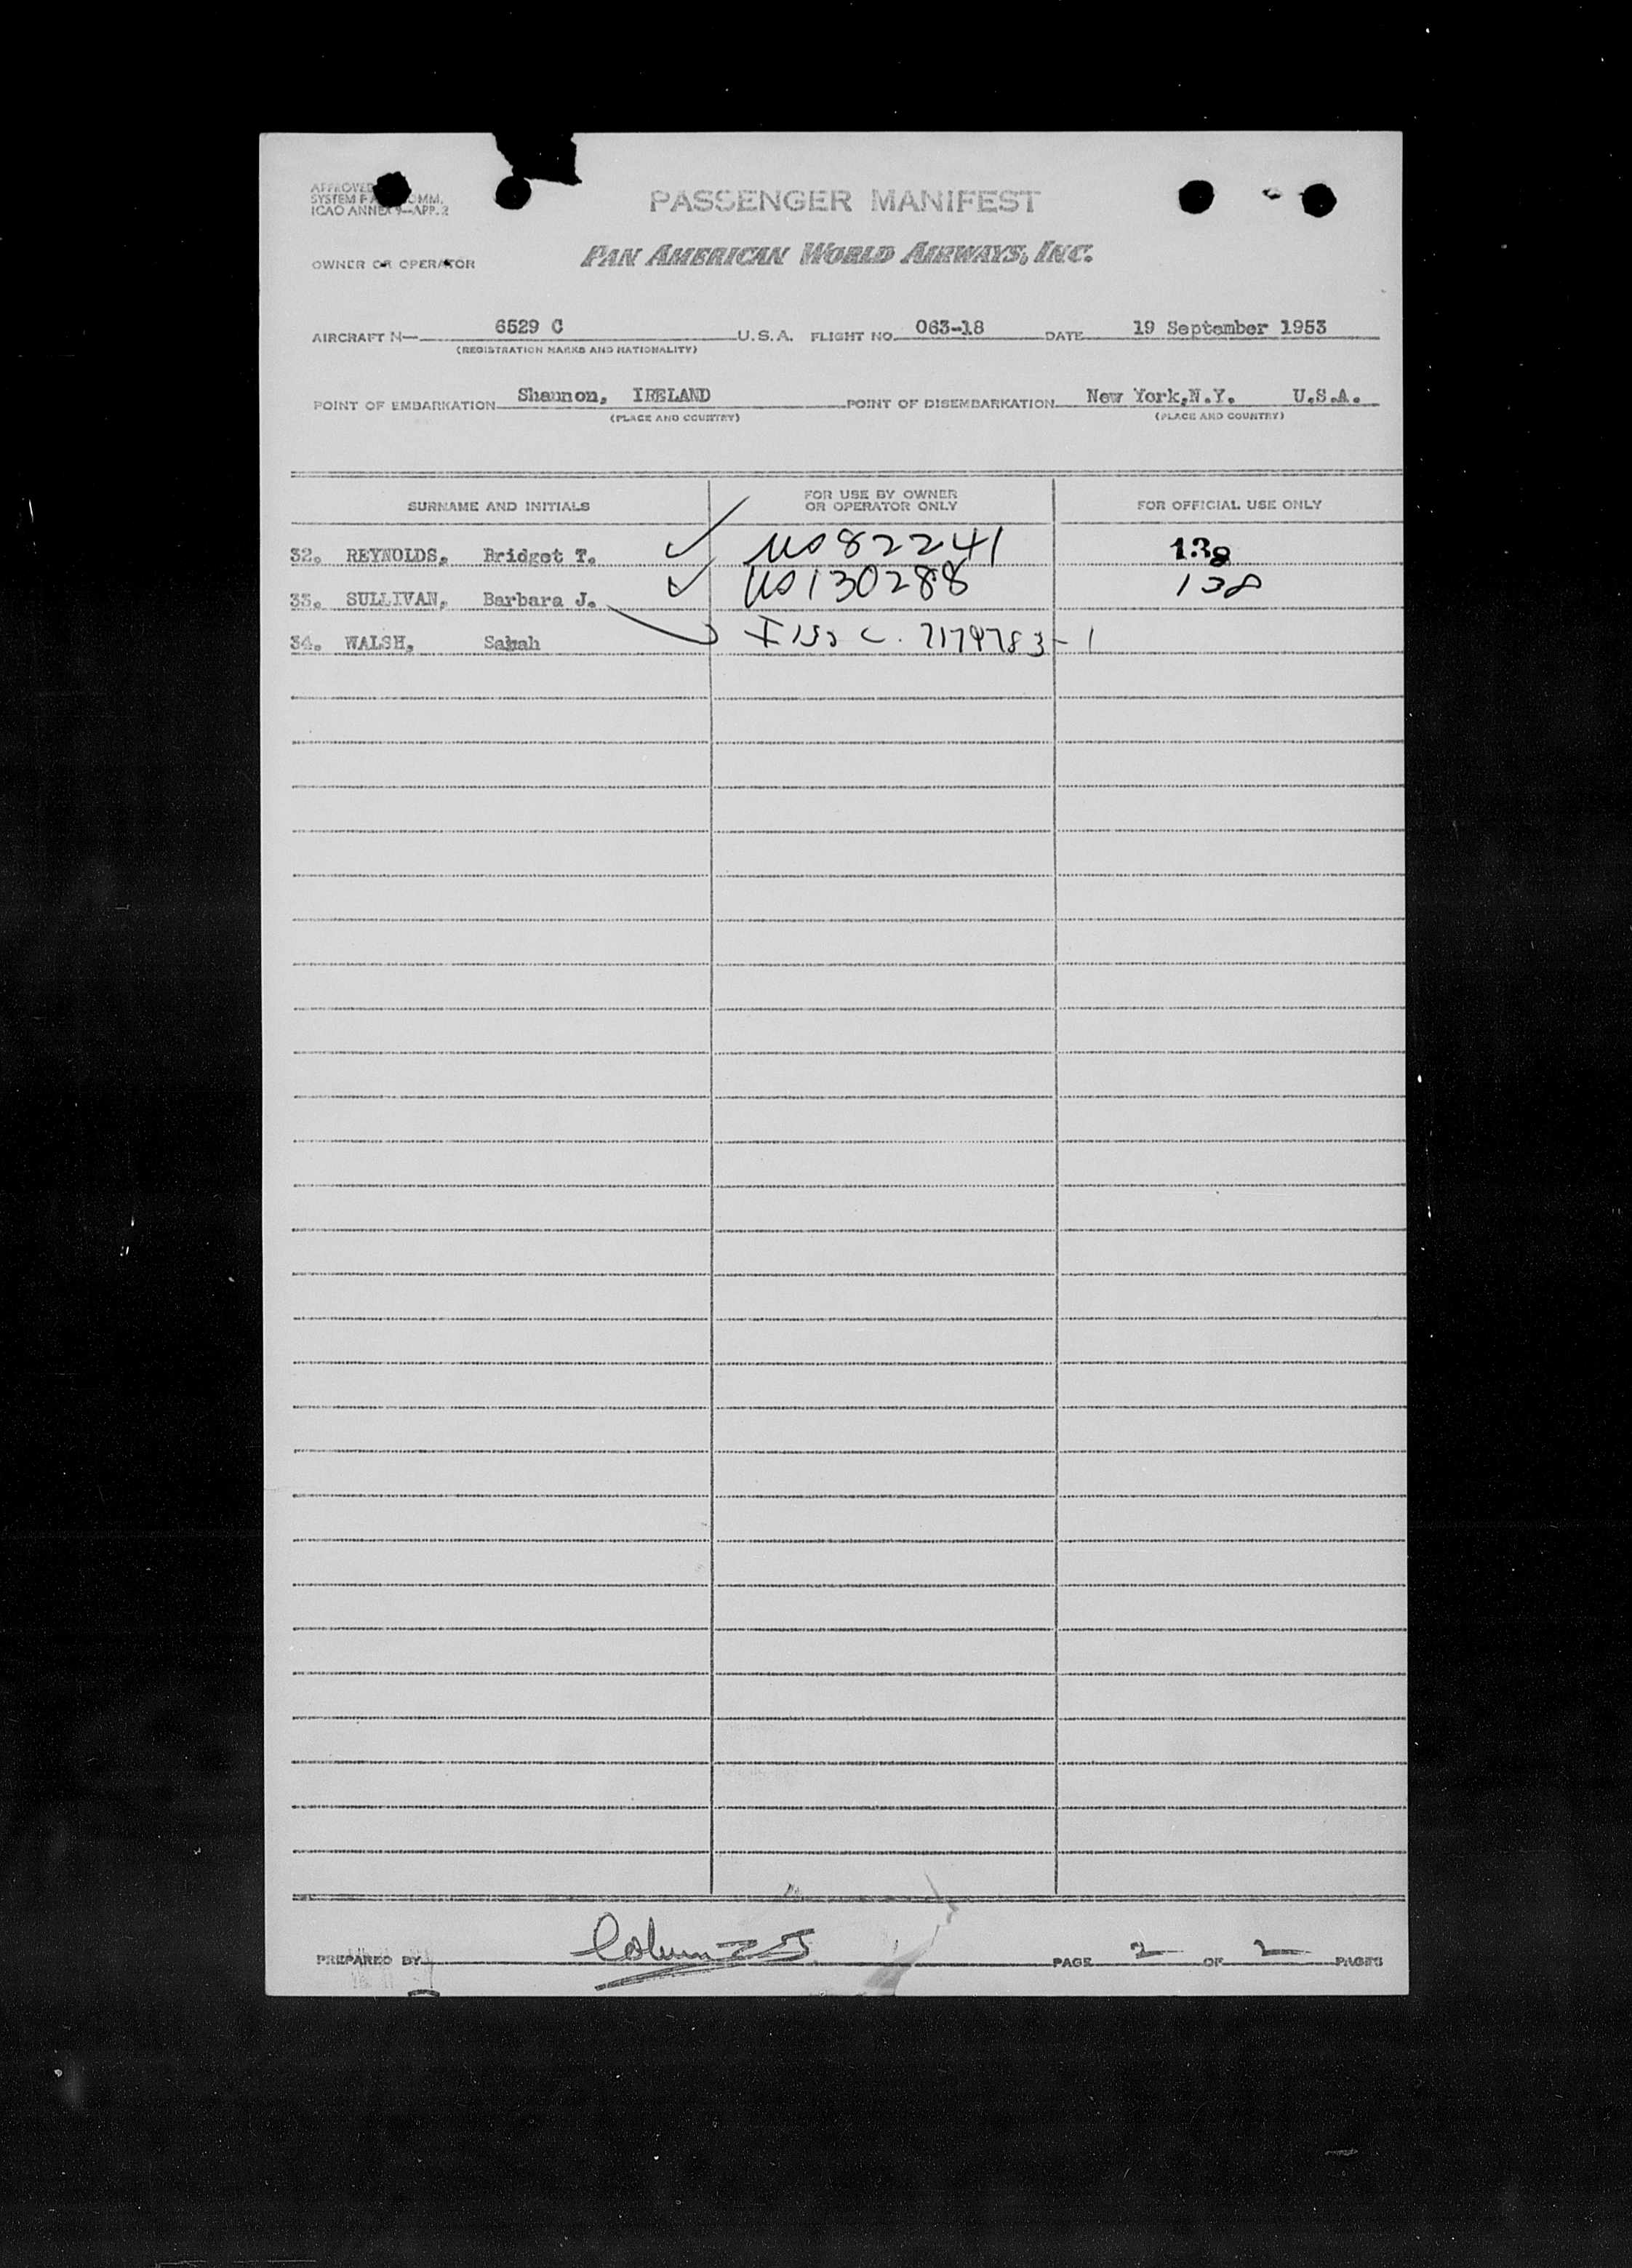 APPROVED
SYSTEM F COMM.
ICAO ANNEX 9—APP. 2
PASSENGER MANIFEST
OWNER OR OPERATOR PAN AMERICAN WORLD AIRWAYS, INC.
AIRCRAFT N— 6529 C U.S.A. FLIGHT NO. 063-18 DATE 19 September 1953
(REGISTRATION MARKS AND NATIONALITY)
POINT OF EMBARKATION Shannon, IRELAND POINT OF DISEMBARKATION New York,N.Y. U.S.A.
(PLACE AND COUNTRY) (PLACE AND COUNTRY)
SURNAME AND INITIALS FOR USE BY OWNER OR OPERATOR ONLY FOR OFFICIAL USE ONLY
32. REYNOLDS, Bridget T. ✓ US 82241 138
33. SULLIVAN, Barbara J. ✓ US 130288 138
34. WALSH, Sarah C. 7179783-1
PREPARED BY PAGE 2 OF 2 PAGES